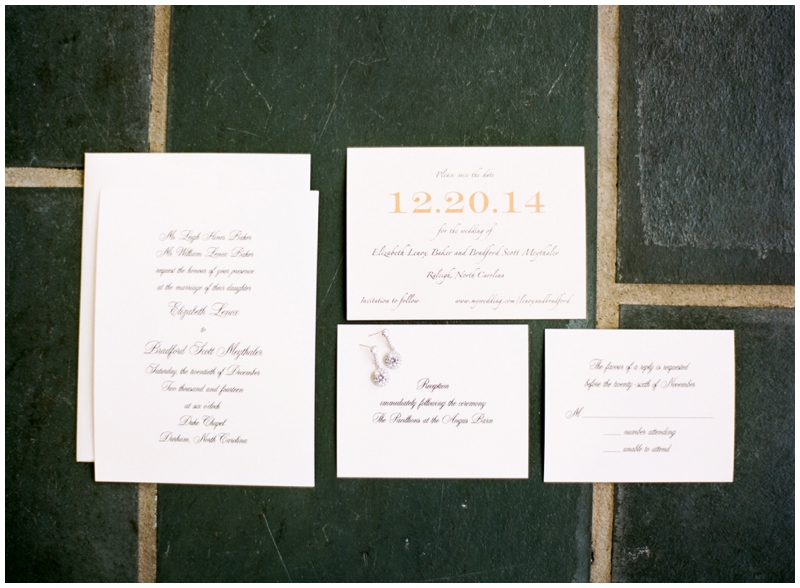 Ms. Leigh Hines Baker
Mr. William Lenox Baker
request the honour of your presence
at the marriage of their daughter
Elizabeth Lenox
to
Bradford Scott Meythaler
Saturday, the twentieth of December
Two thousand and fourteen
at six o'clock
Duke Chapel
Durham, North Carolina
Please save the date
12.20.14
for the wedding of
Elizabeth Lenox Baker and Bradford Scott Meythaler
Raleigh, North Carolina
Invitation to follow www.mywedding.com/lenoxandbradford
Reception
immediately following the ceremony
The Pavilions at the Angus Barn
The favour of a reply is requested
before the twenty-sixth of November
M
number attending
unable to attend